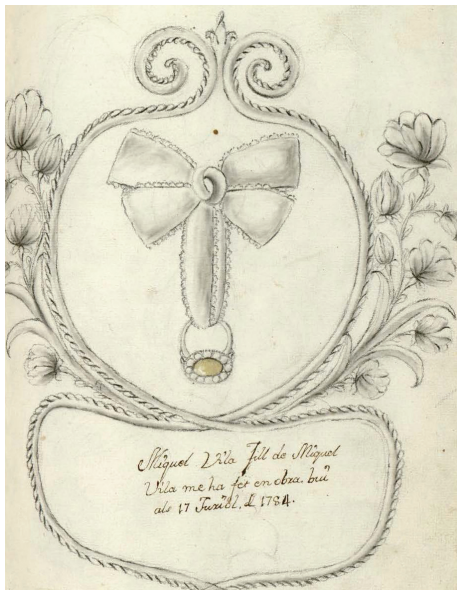 Miquel Vila Fill de Miquel
Vila me ha fet en obra. buÿ
als 17 de 1784.